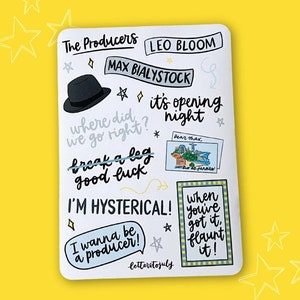 The Producers
LEO BLOOM
MAX BIALYSTOCK
it's opening
night
where did
we go right?
dear max,
break a leg
good luck
I'M HYSTERICAL!
when
you've
got it,
flaunt
it!
I wanna be
a producer!
letteritojuly